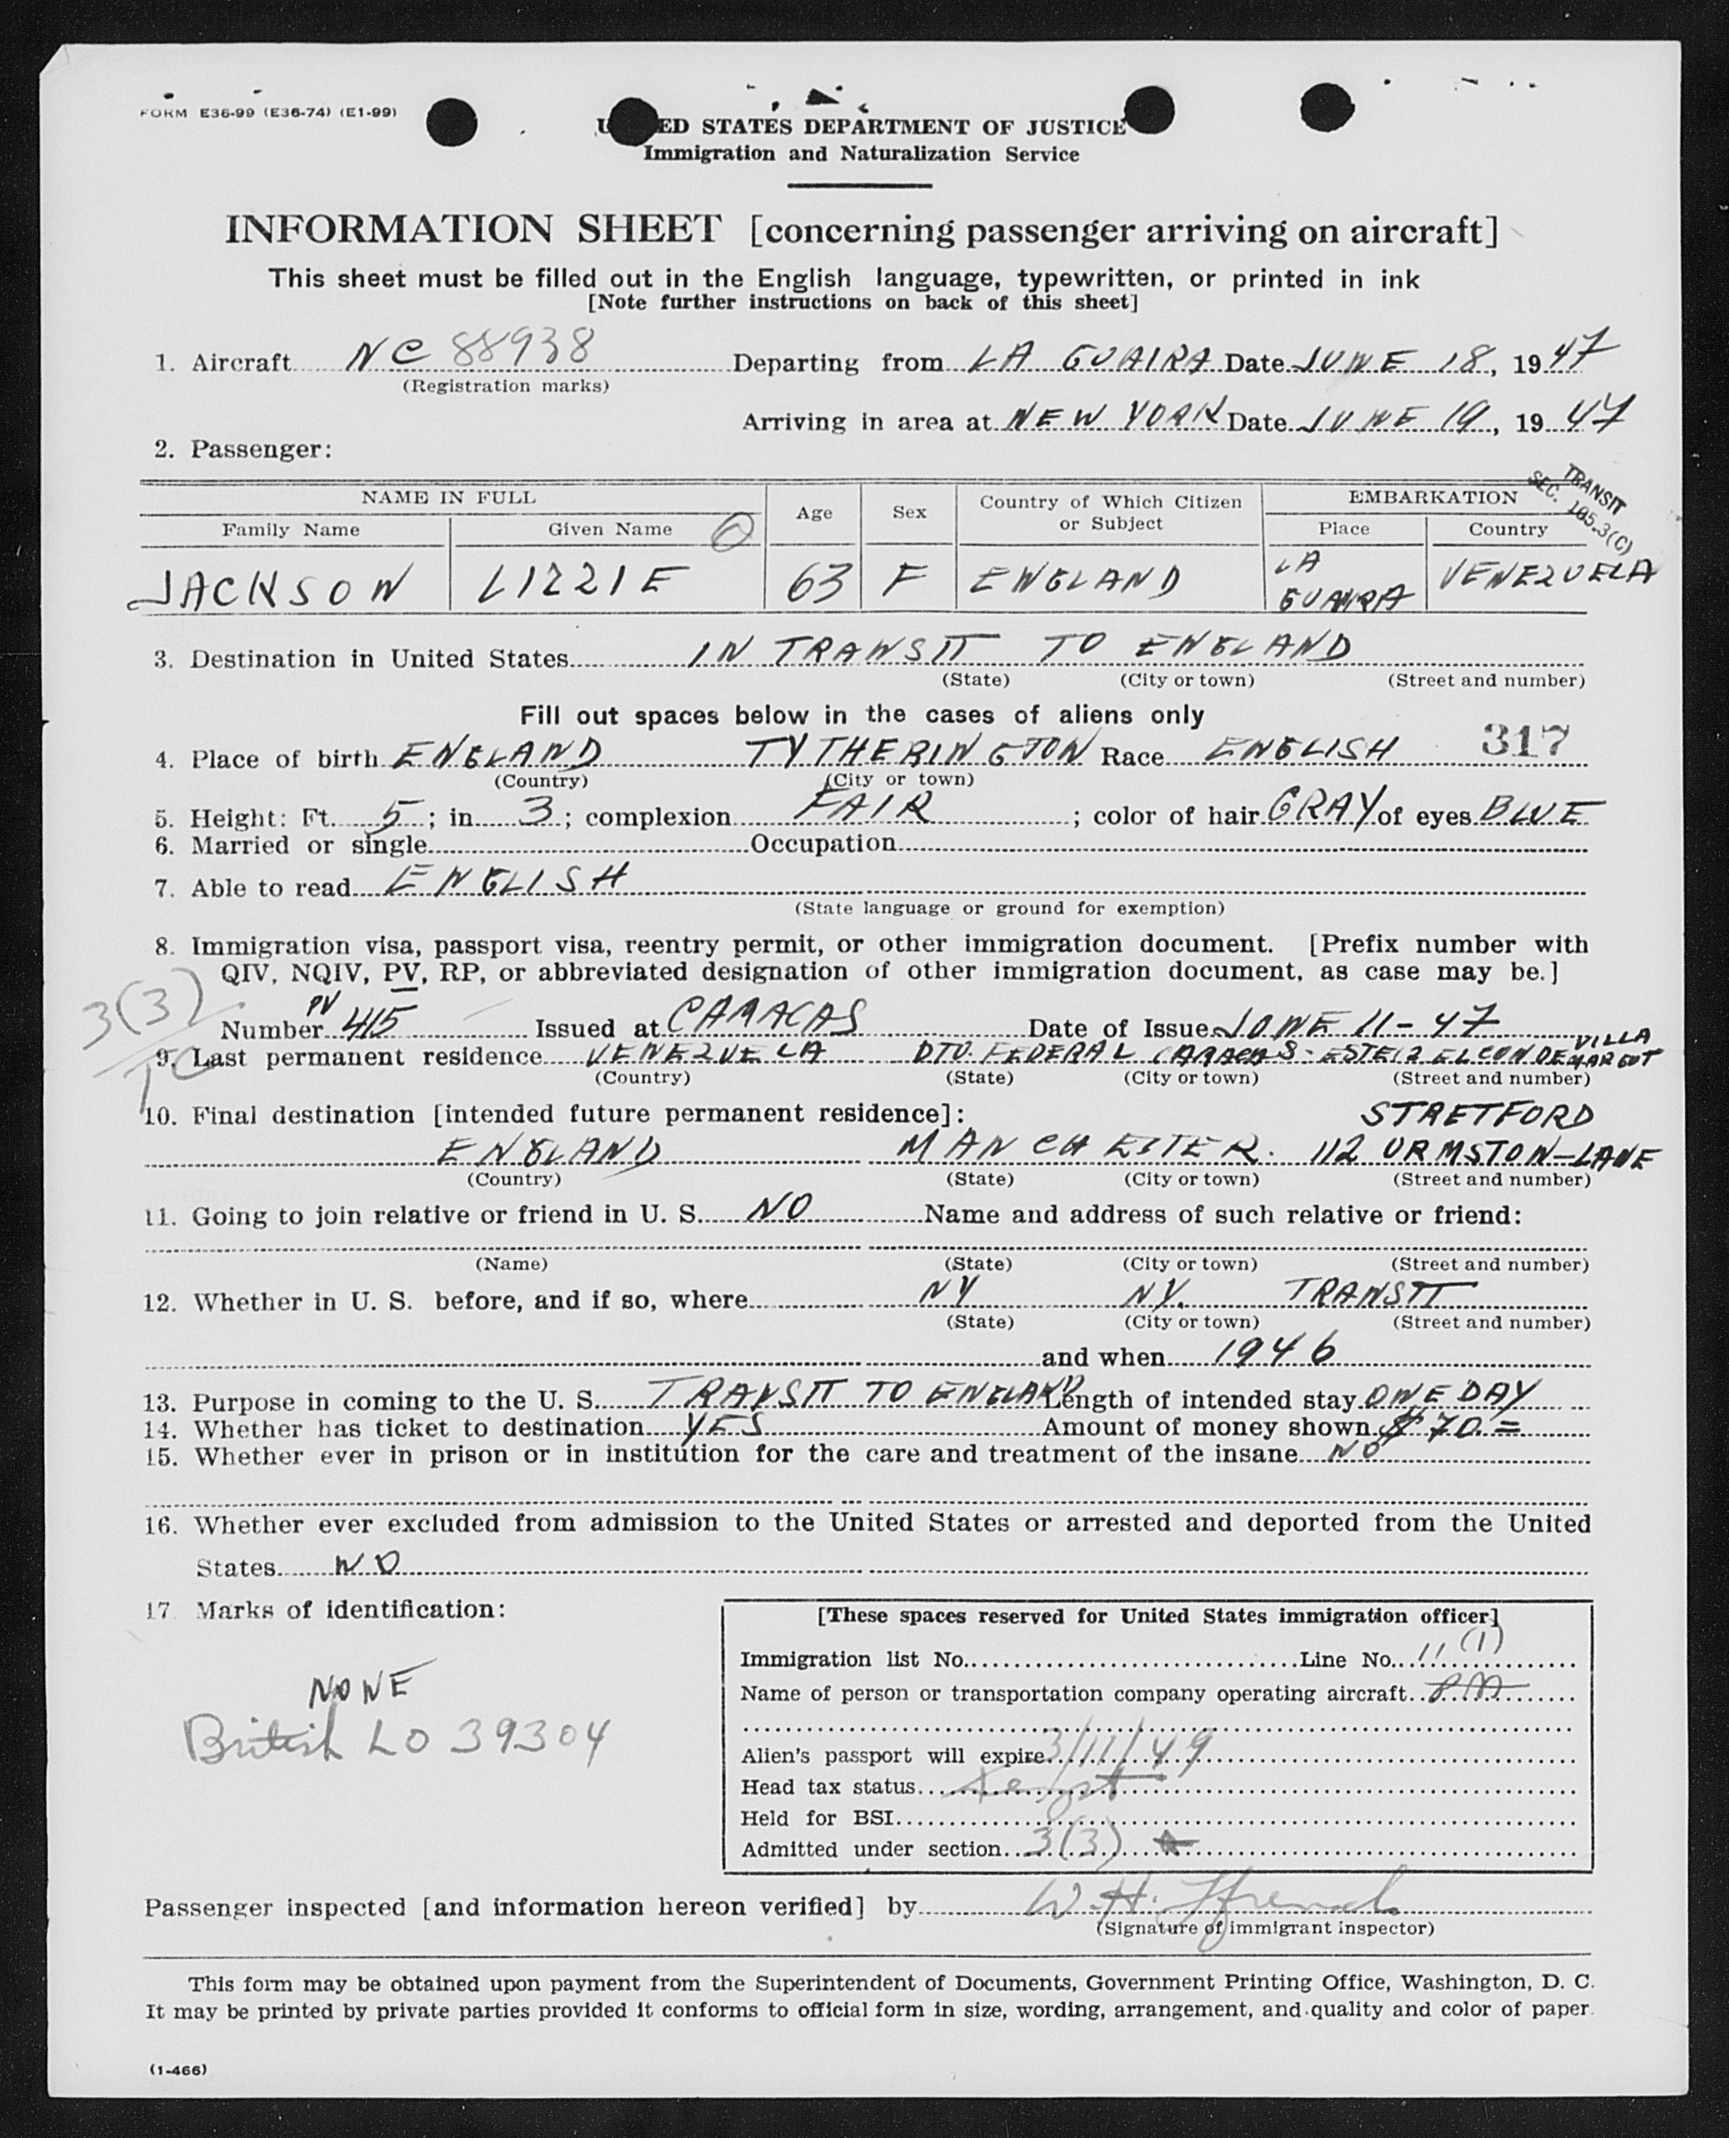 FORM E36-99 (E36-74) (E1-99)
ED STATES DEPARTMENT OF JUSTICE
Immigration and Naturalization Service
INFORMATION SHEET [concerning passenger arriving on aircraft]
This sheet must be filled out in the English language, typewritten, or printed in ink
[Note further instructions on back of this sheet]
1. Aircraft NC 88938 Departing from LA GUAIRA Date JUNE 18, 1947
(Registration marks)
Arriving in area at NEW YORK Date JUNE 19, 1947
2. Passenger:
TRANSIT
SEC. 105.3(C)
NAME IN FULL Age Sex Country of Which Citizen or Subject EMBARKATION
Family Name Given Name Place Country
JACKSON LIZZIE 63 F ENGLAND LA GUAIRA VENEZUELA
3. Destination in United States IN TRANSIT TO ENGLAND
(State) (City or town) (Street and number)
Fill out spaces below in the cases of aliens only
317
4. Place of birth ENGLAND TYTHERINGTON Race ENGLISH
(Country) (City or town)
5. Height: Ft. 5; in. 3; complexion FAIR; color of hair GRAY of eyes BLUE
6. Married or single Occupation
7. Able to read ENGLISH
(State language or ground for exemption)
8. Immigration visa, passport visa, reentry permit, or other immigration document. [Prefix number with
QIV, NQIV, PV, RP, or abbreviated designation of other immigration document, as case may be.]
3(3)
TC
Number PV 415 Issued at CARACAS Date of Issue JUNE 11-47
9. Last permanent residence VENEZUELA DTO. FEDERAL CARACAS - ESTE 12 EL CONDE VILLA MARGOT
(Country) (State) (City or town) (Street and number)
10. Final destination [intended future permanent residence]: STRETFORD
ENGLAND MANCHESTER. 112 URMSTON-LANE
(Country) (State) (City or town) (Street and number)
11. Going to join relative or friend in U. S. NO Name and address of such relative or friend:
(Name) (State) (City or town) (Street and number)
12. Whether in U. S. before, and if so, where NY NY. TRANSIT
(State) (City or town) (Street and number)
and when 1946
13. Purpose in coming to the U. S. TRANSIT TO ENGLAND Length of intended stay ONE DAY
14. Whether has ticket to destination YES Amount of money shown $ 70.=
15. Whether ever in prison or in institution for the care and treatment of the insane NO
16. Whether ever excluded from admission to the United States or arrested and deported from the United
States NO
17. Marks of identification:
NONE
British LO 39304
[These spaces reserved for United States immigration officer]
Immigration list No. Line No. 11 (1)
Name of person or transportation company operating aircraft
Alien's passport will expire 3/11/49
Head tax status
Held for BSI
Admitted under section 3(3)
Passenger inspected [and information hereon verified] by W. H. Ffrench
(Signature of immigrant inspector)
This form may be obtained upon payment from the Superintendent of Documents, Government Printing Office, Washington, D. C.
It may be printed by private parties provided it conforms to official form in size, wording, arrangement, and quality and color of paper.
(1-466)